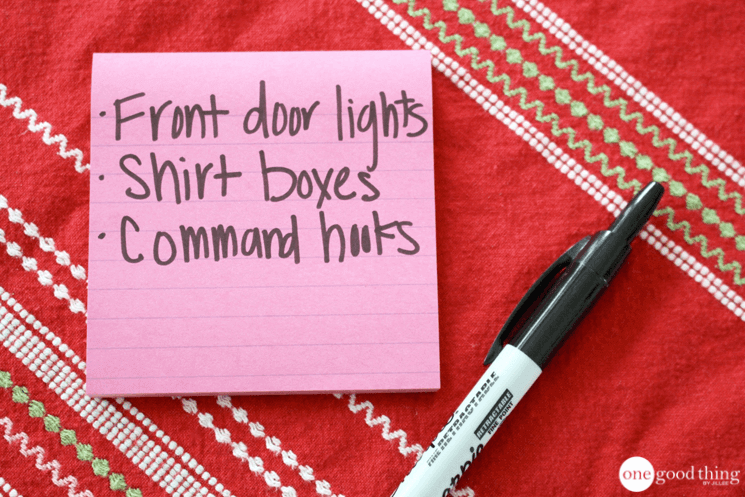 · Front door lights
· Shirt boxes
· Command hooks
RETRACTABLE
FINE POINT
RETRACTABLE
one good thing
BY JILLEE